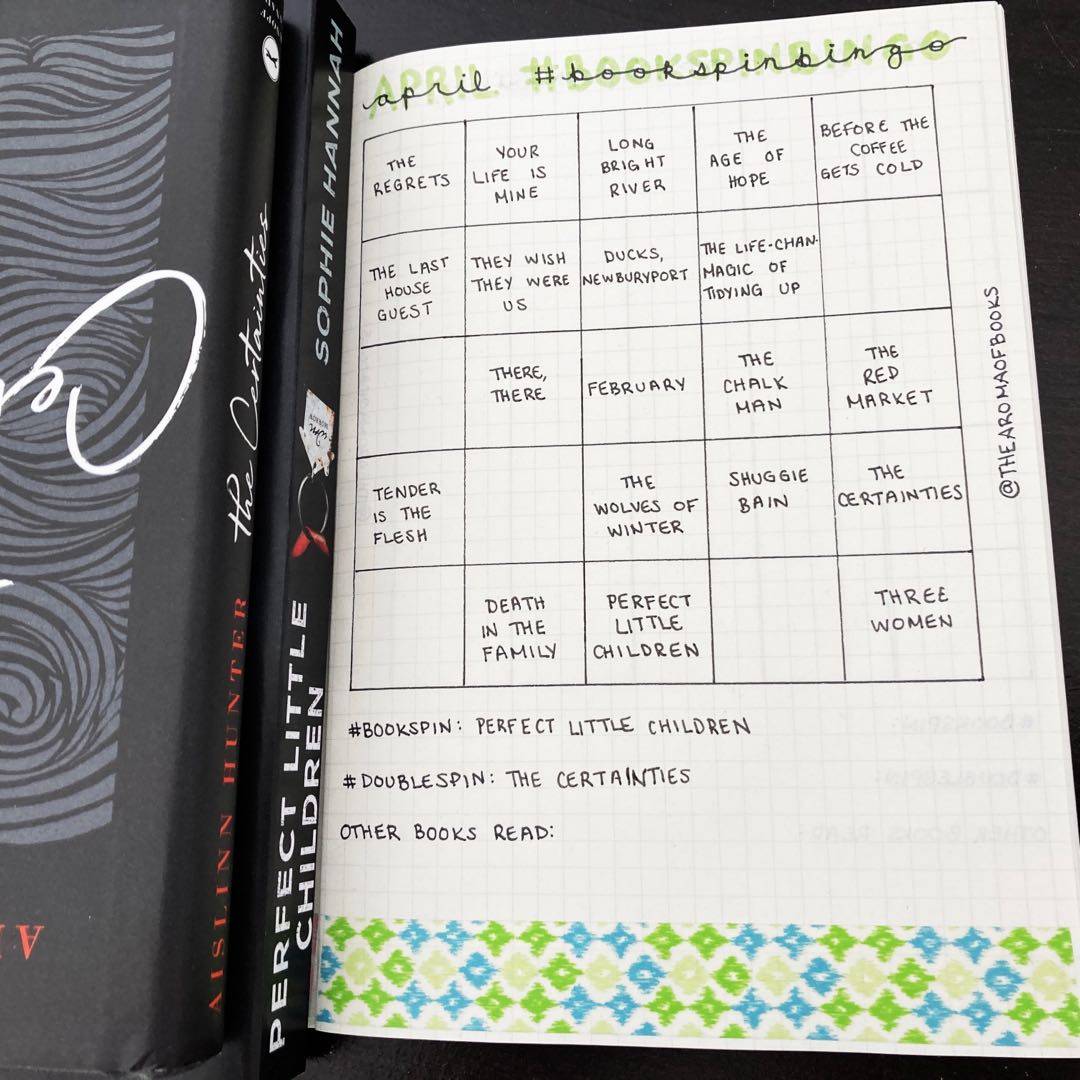 APRIL #BOOKSPINBINGO
april #bookspinbingo
THE
REGRETS
YOUR
LIFE IS
MINE
LONG
BRIGHT
RIVER
THE
AGE OF
HOPE
BEFORE THE
COFFEE
GETS COLD
THE LAST
HOUSE
GUEST
THEY WISH
THEY WERE
US
DUCKS,
NEWBURYPORT
THE LIFE-CHAN-
MAGIC OF
TIDYING UP
THERE,
THERE
FEBRUARY
THE
CHALK
MAN
THE
RED
MARKET
TENDER
IS THE
FLESH
THE
WOLVES OF
WINTER
SHUGGIE
BAIN
THE
CERTAINTIES
DEATH
IN THE
FAMILY
PERFECT
LITTLE
CHILDREN
THREE
WOMEN
#BOOKSPIN: PERFECT LITTLE CHILDREN
#DOUBLESPIN: THE CERTAINTIES
OTHER BOOKS READ:
@THEAROMAOFBOOKS
AISLINN HUNTER the Certainties
PERFECT LITTLE
CHILDREN
SOPHIE HANNAH